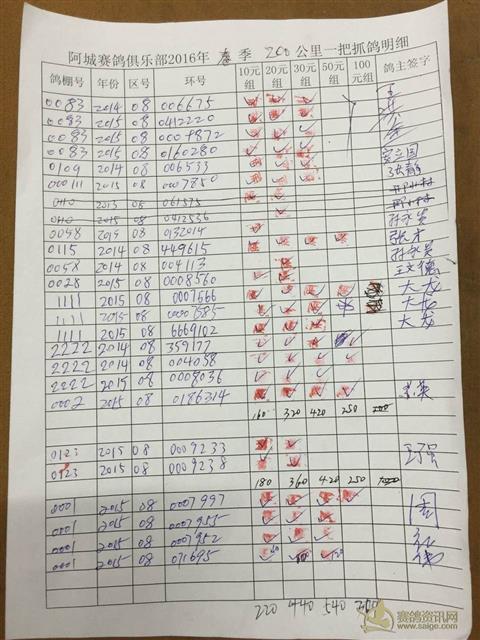 阿城赛鸽俱乐部2016年 春 季 200 公里一把抓鸽明细
鸽棚号 年份 区号 环号 10元组 20元组 30元组 50元组 100元组 鸽主签字
0083 2014 08 006675
0083 2015 08 0412220
0083 2015 08 0007872
0083 2015 08 0160280
0109 2014 08 006533 张静
000111 2015 08 0007850
0110 2013 08 061575
0110 2015 08 0412536
0058 2015 08 0132014
0115 2014 08 449615 张才
0058 2014 08 004113
0028 2015 08 0008560 王文德
1111 2015 08 0007666 大龙
1111 2015 08 0000585 大龙
1111 2015 08 6669102 大龙
2222 2014 08 359177
2222 2014 08 004058
2222 2015 08 0008036
0002 2015 08 0186314
160 320 420 250
0123 2015 08 0009233
0123 2015 08 0009238
180 360 420 250
0001 2015 08 0007997
0001 2015 08 0007955
0001 2015 08 0007952
0001 2015 08 071695
220 440 540
赛鸽资讯网
www.saige.com